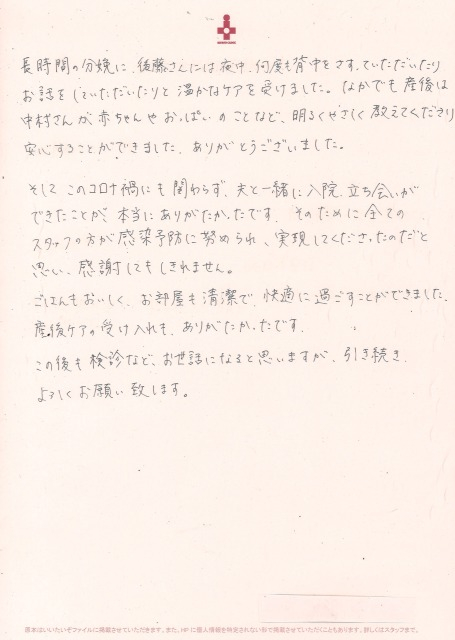 長時間の分娩に、後藤さんには夜中、何度も背中をさすっていただいたり
お話をしていただいたりと温かなケアを受けました。なかでも産後は
中村さんが赤ちゃんやおっぱいのことなど、明るくやさしく教えてくださり
安心することができました。ありがとうございました。
そしてこのコロナ禍にも関わらず、夫と一緒に入院、立ち会いが
できたことが、本当にありがたかったです。そのために全ての
スタッフの方が感染予防に努められ、実現してくださったのだと
思い、感謝してもしきれません。
ごはんもおいしく、お部屋も清潔で、快適に過ごすことができました。
産後ケアの受け入れも、ありがたかったです。
この後も検診など、お世話になると思いますが、引き続き、
よろしくお願い致します。
原本はいいたいぞファイルに掲載させていただきます。また、HPに個人情報を特定されない形で掲載させていただくこともあります。詳しくはスタッフまで。